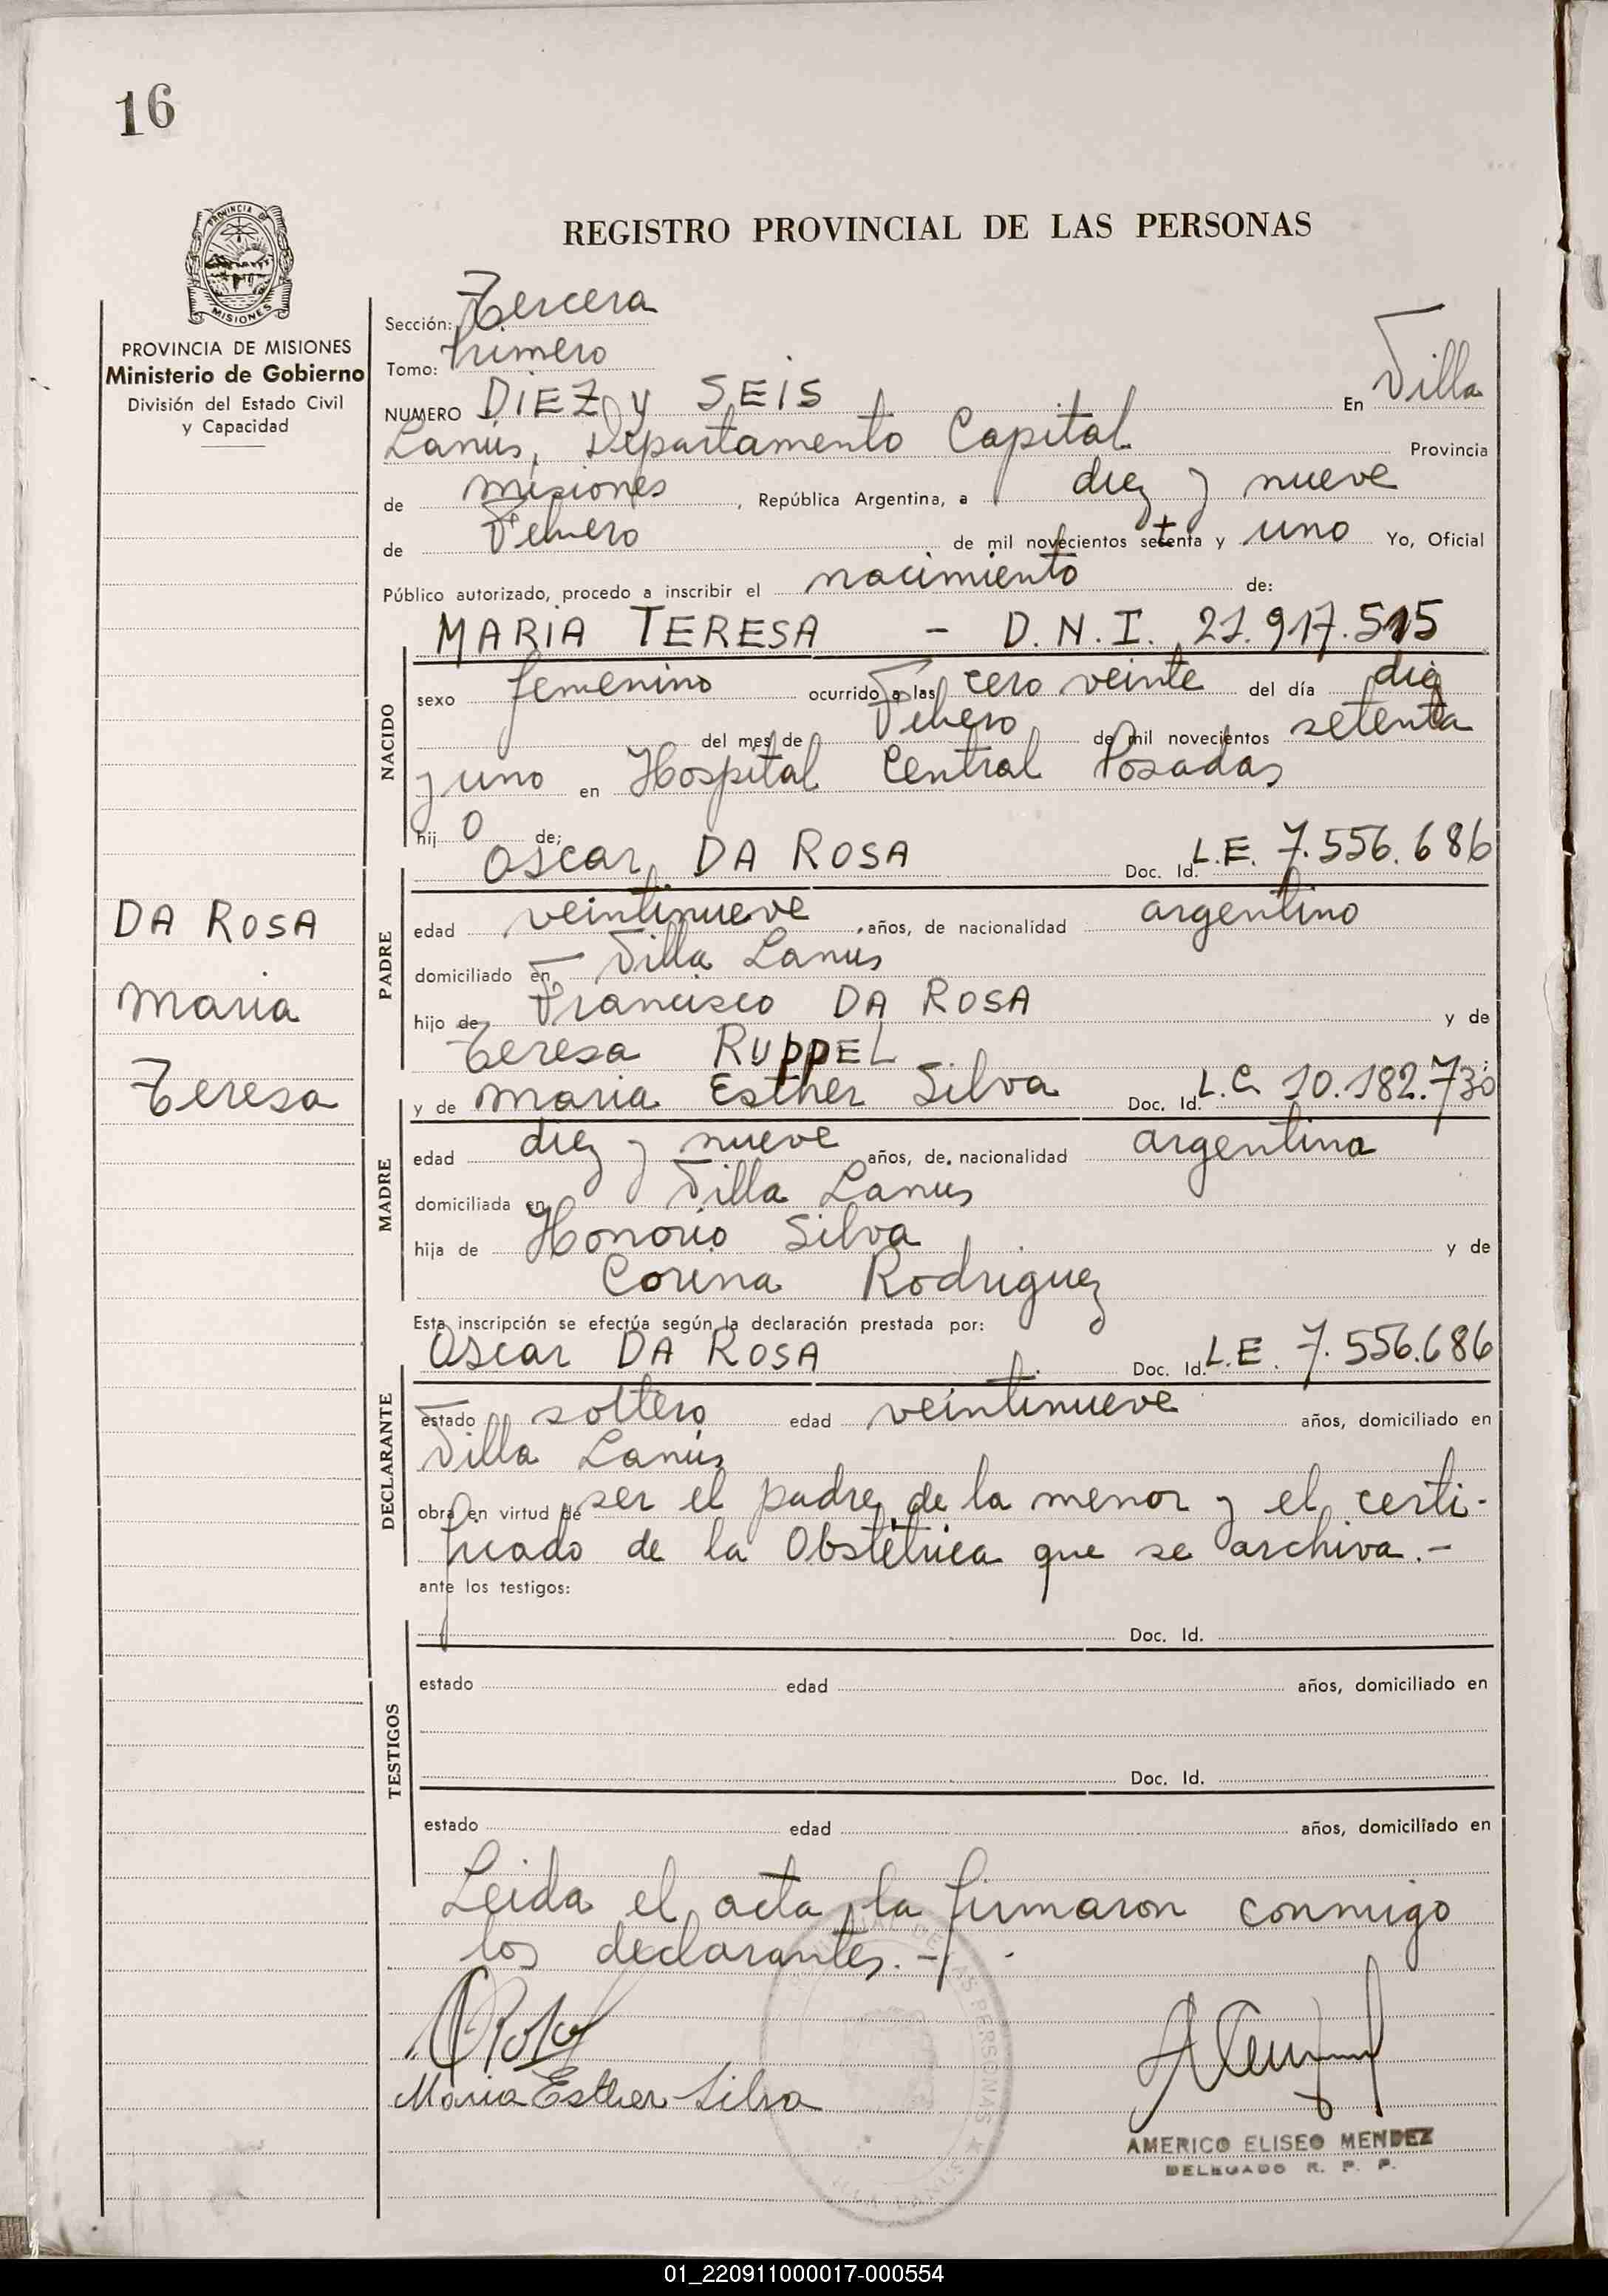 16
REGISTRO PROVINCIAL DE LAS PERSONAS
PROVINCIA DE
MISIONES
PROVINCIA DE MISIONES
Ministerio de Gobierno
División del Estado Civil
y Capacidad
DA ROSA
Maria
Teresa
Sección: Tercera
Tomo: Primero
NUMERO DiEZ y SEiS En Villa
Lanús, Departamento Capital Provincia
de Misiones, República Argentina, a diez y nueve
de Febrero de mil novecientos setenta y uno Yo, Oficial
Público autorizado, procedo a inscribir el nacimiento de:
NACIDO
MARIA TERESA - D.N.I. 21.917.515
sexo femenino ocurrido a las cero veinte del día diez
del mes de Febrero de mil novecientos setenta
y uno en Hospital Central Posadas
hij o de:
PADRE
Oscar DA ROSA Doc. Id. L.E. 7.556.686
edad veintinueve años, de nacionalidad argentino
domiciliado en Villa Lanus
hijo de Francisco DA ROSA y de
Teresa RUppEL
MADRE
y de Maria Esther Silva Doc. Id. L.C. 10.182.730
edad diez y nueve años, de nacionalidad argentina
domiciliada en Villa Lanus
hija de Honorio Silva y de
Corina Rodriguez
Esta inscripción se efectúa según la declaración prestada por:
DECLARANTE
Oscar DA ROSA Doc. Id. L.E. 7.556.686
estado soltero edad veintinueve años, domiciliado en
Villa Lanús
obra en virtud de ser el padre de la menor y el certi-
ficado de la Obstétrica que se archiva.-
ante los testigos:
TESTIGOS
Doc. Id.
estado edad años, domiciliado en
Doc. Id.
estado edad años, domiciliado en
Leida el acta, la firmaron conmigo
los declarantes.-
Maria Esther Silva
AMERICO ELISEO MENDEZ
DELEGADO R. P. P.
01_220911000017-000554